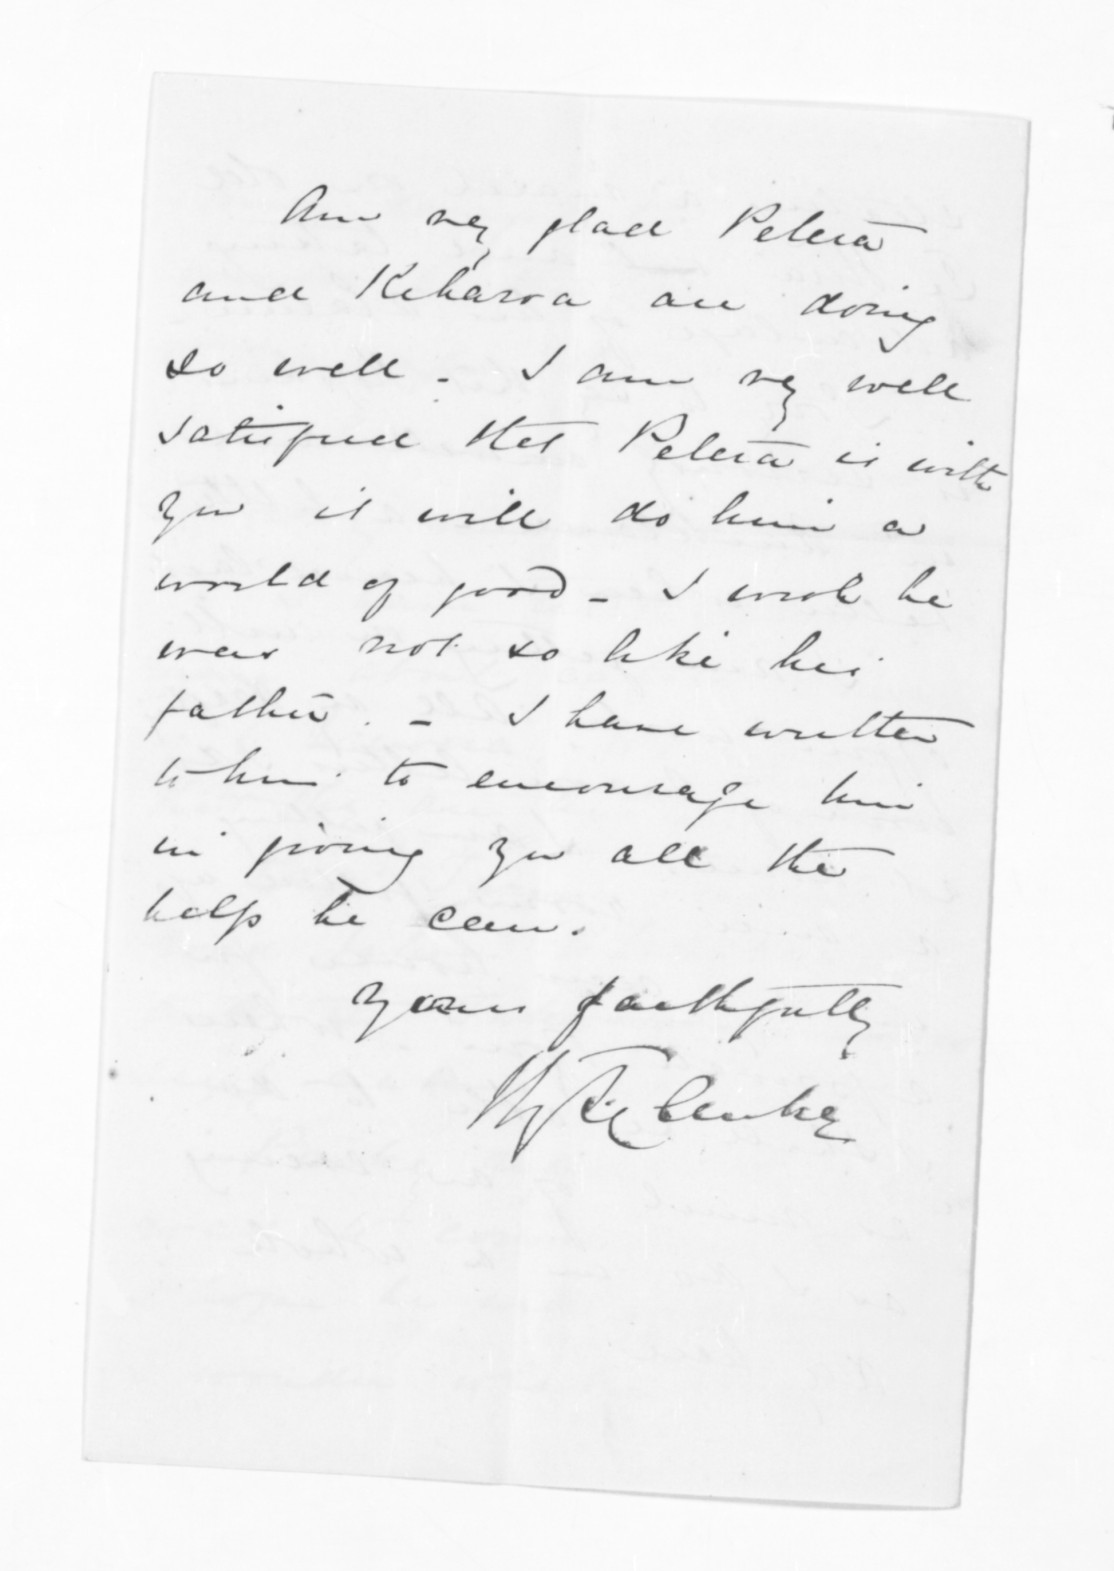 Am very glad Peleita
and Keharoa are doing
so well - I am very well
satisfied that Peleita is with
you it will do him a
world of good - I wish he
was not so like his
father. - I have written
to him to encourage him
in giving you all the
help he can.
Yours faithfully
Clarke